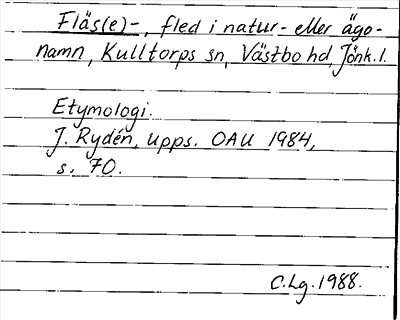 Fläs(e)-, fled i natur- eller ägo-
namn, Kulltorps sn, Västbo hd, Jönk.l.
Etymologi.
J. Rydén, Upps. OAU 1984,
s. 70.
C.Lg. 1988.